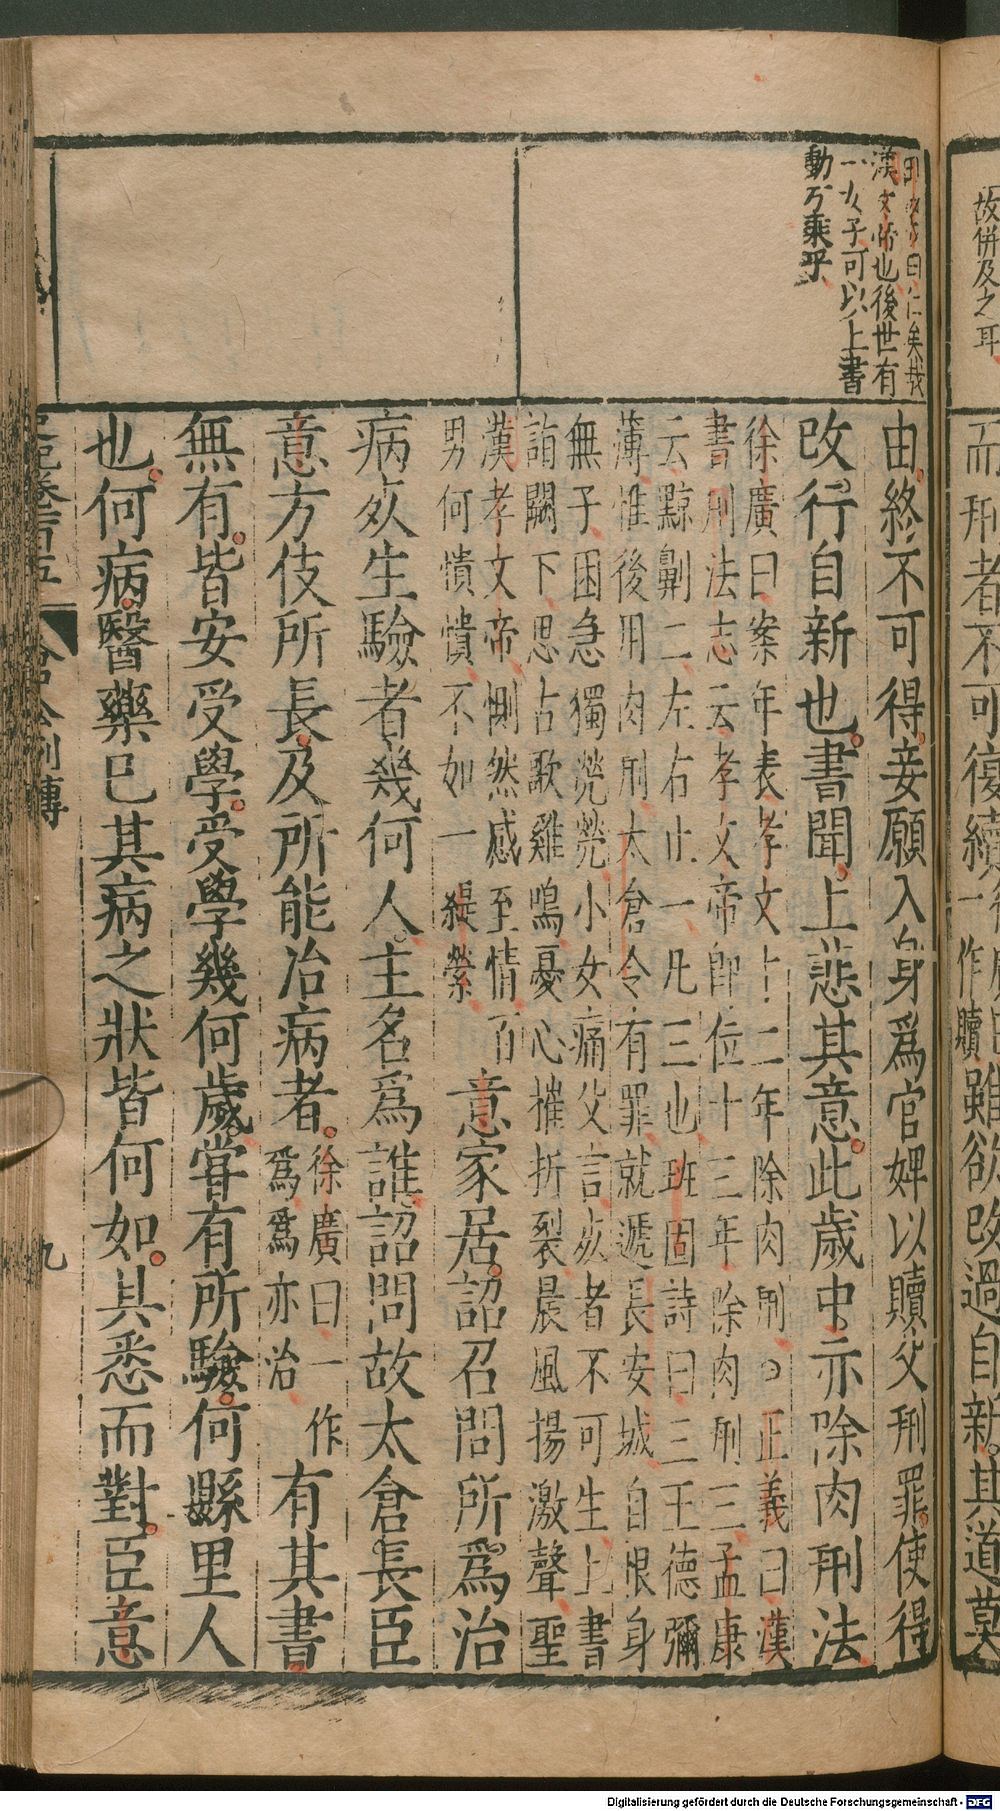 故併及之耳
而刑者不可復續一作贖雖欲改過自新其道莫
曰仁矣哉
漢文帝也後世有
一女子可以上書
動万乘乎
由終不可得妾願入身爲官婢以贖父刑罪使得
改行自新也書聞上悲其意此歲中亦除肉刑法
徐廣曰案年表孝文十二年除肉刑○正義曰漢
書刑法志云孝文帝卽位十三年除肉刑三孟康
云黥劓二左右止一凡三也班固詩曰三王德彌
薄惟後用肉刑太倉令有罪就遞長安城自恨身
無子困急獨煢煢小女痛父言死者不可生上書
詣闕下思古歌雞鳴憂心摧折裂晨風揚激聲聖
漢孝文帝惻然感至情百
男何憒憒不如一緹縈
意家居詔召問所爲治
病死生驗者幾何人主名爲誰詔問故太倉長臣
意方伎所長及所能治病者
徐廣曰一作
爲爲亦治
有其書
無有皆安受學受學幾何歲嘗有所驗何縣里人
也何病醫藥已其病之狀皆何如其悉而對臣意
倉公列傳
九
Digitalisierung gefördert durch die Deutsche Forschungsgemeinschaft - DFG